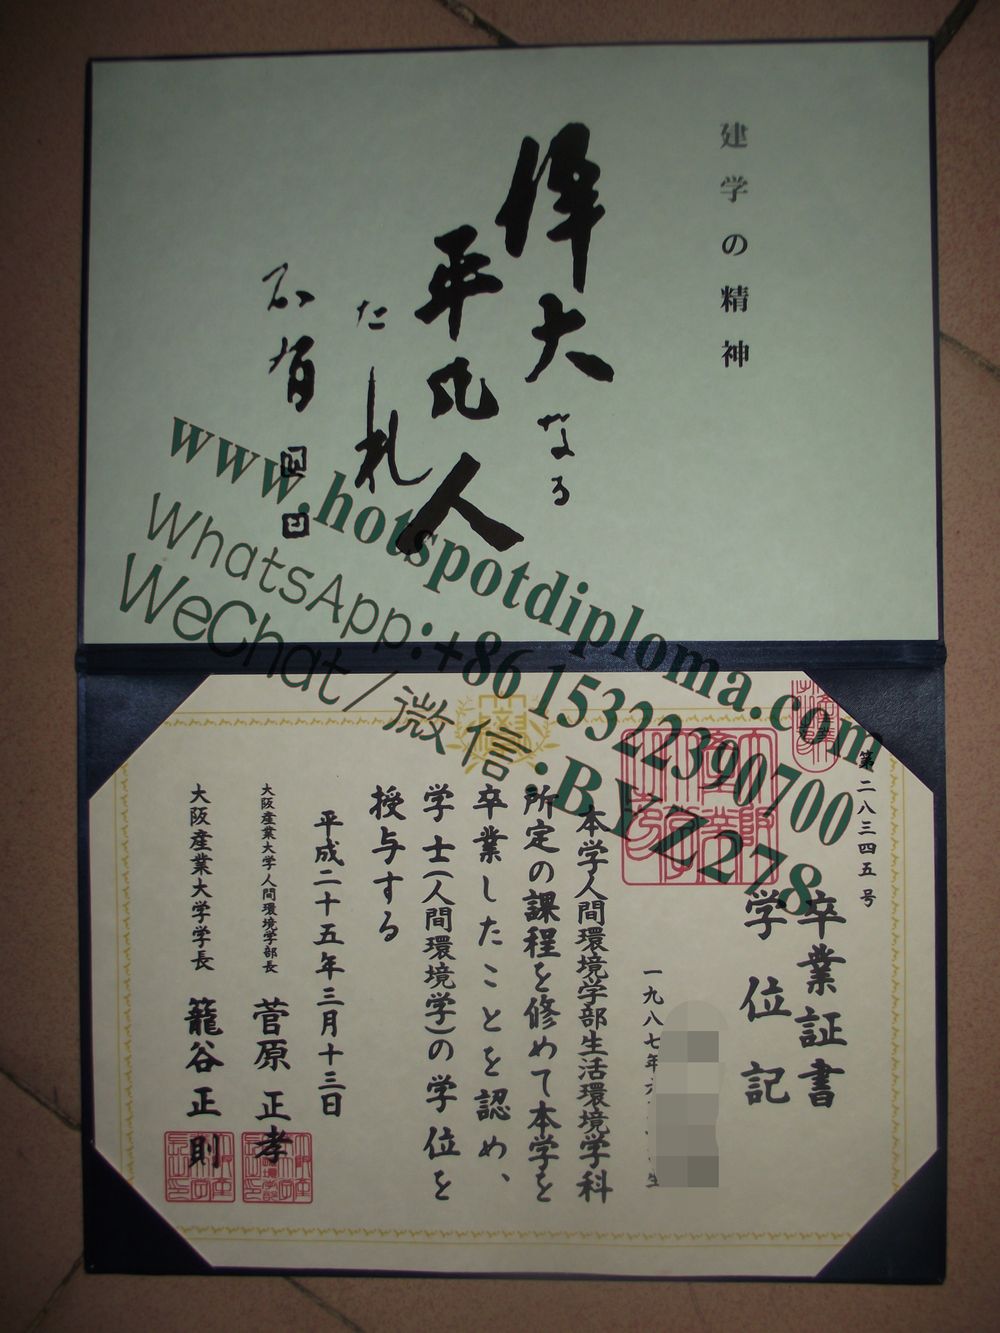 建学の精神
偉大なる
平凡人
たれ
www.hotspotdiploma.com
WhatsApp:+86 15322390700
WeChat/微信:BYZ278
第二八三四五号
卒業証書
学位記
一九八七年六
生
本学人間環境学部生活環境学科
所定の課程を修めて本学を
卒業したことを認め、
学士(人間環境学)の学位を
授与する
平成二十五年三月十三日
大阪産業大学人間環境学部長 菅原正孝
大阪産業大学学長 籠谷正則